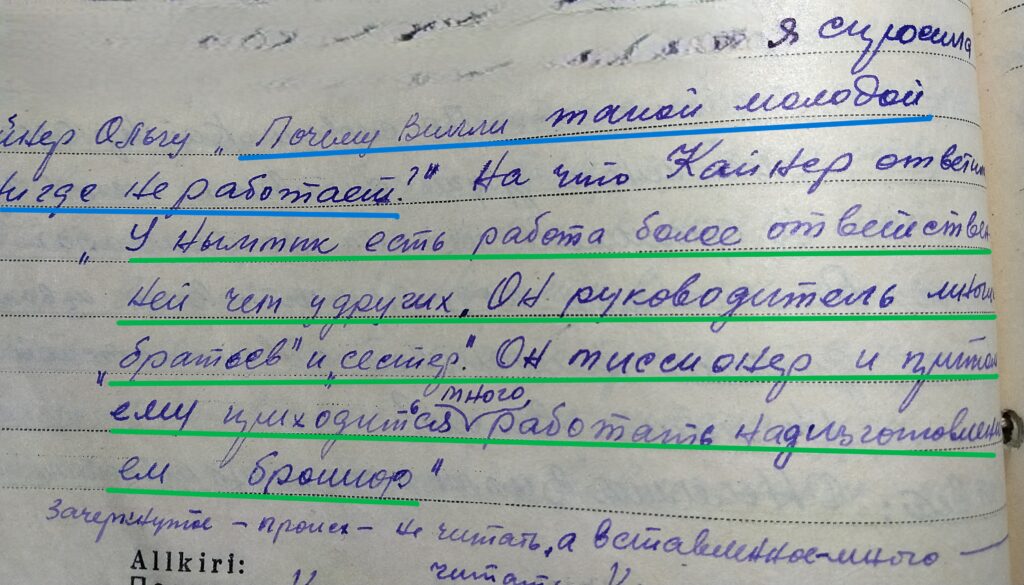 я спросила
йнер Ольгу „Почему Вилли такой молодой
нигде не работает?" На что Кайнер ответи
„У Нымтик есть работа более ответствен
ней чем у других. Он руководитель многи
„братьев" и „сестер". Он миссионер и прито
ему приходиться много работать над изготовлени
ем брошюр"
Зачеркнутое – происк – не читать, а вставленное – много –
Allkiri: читат